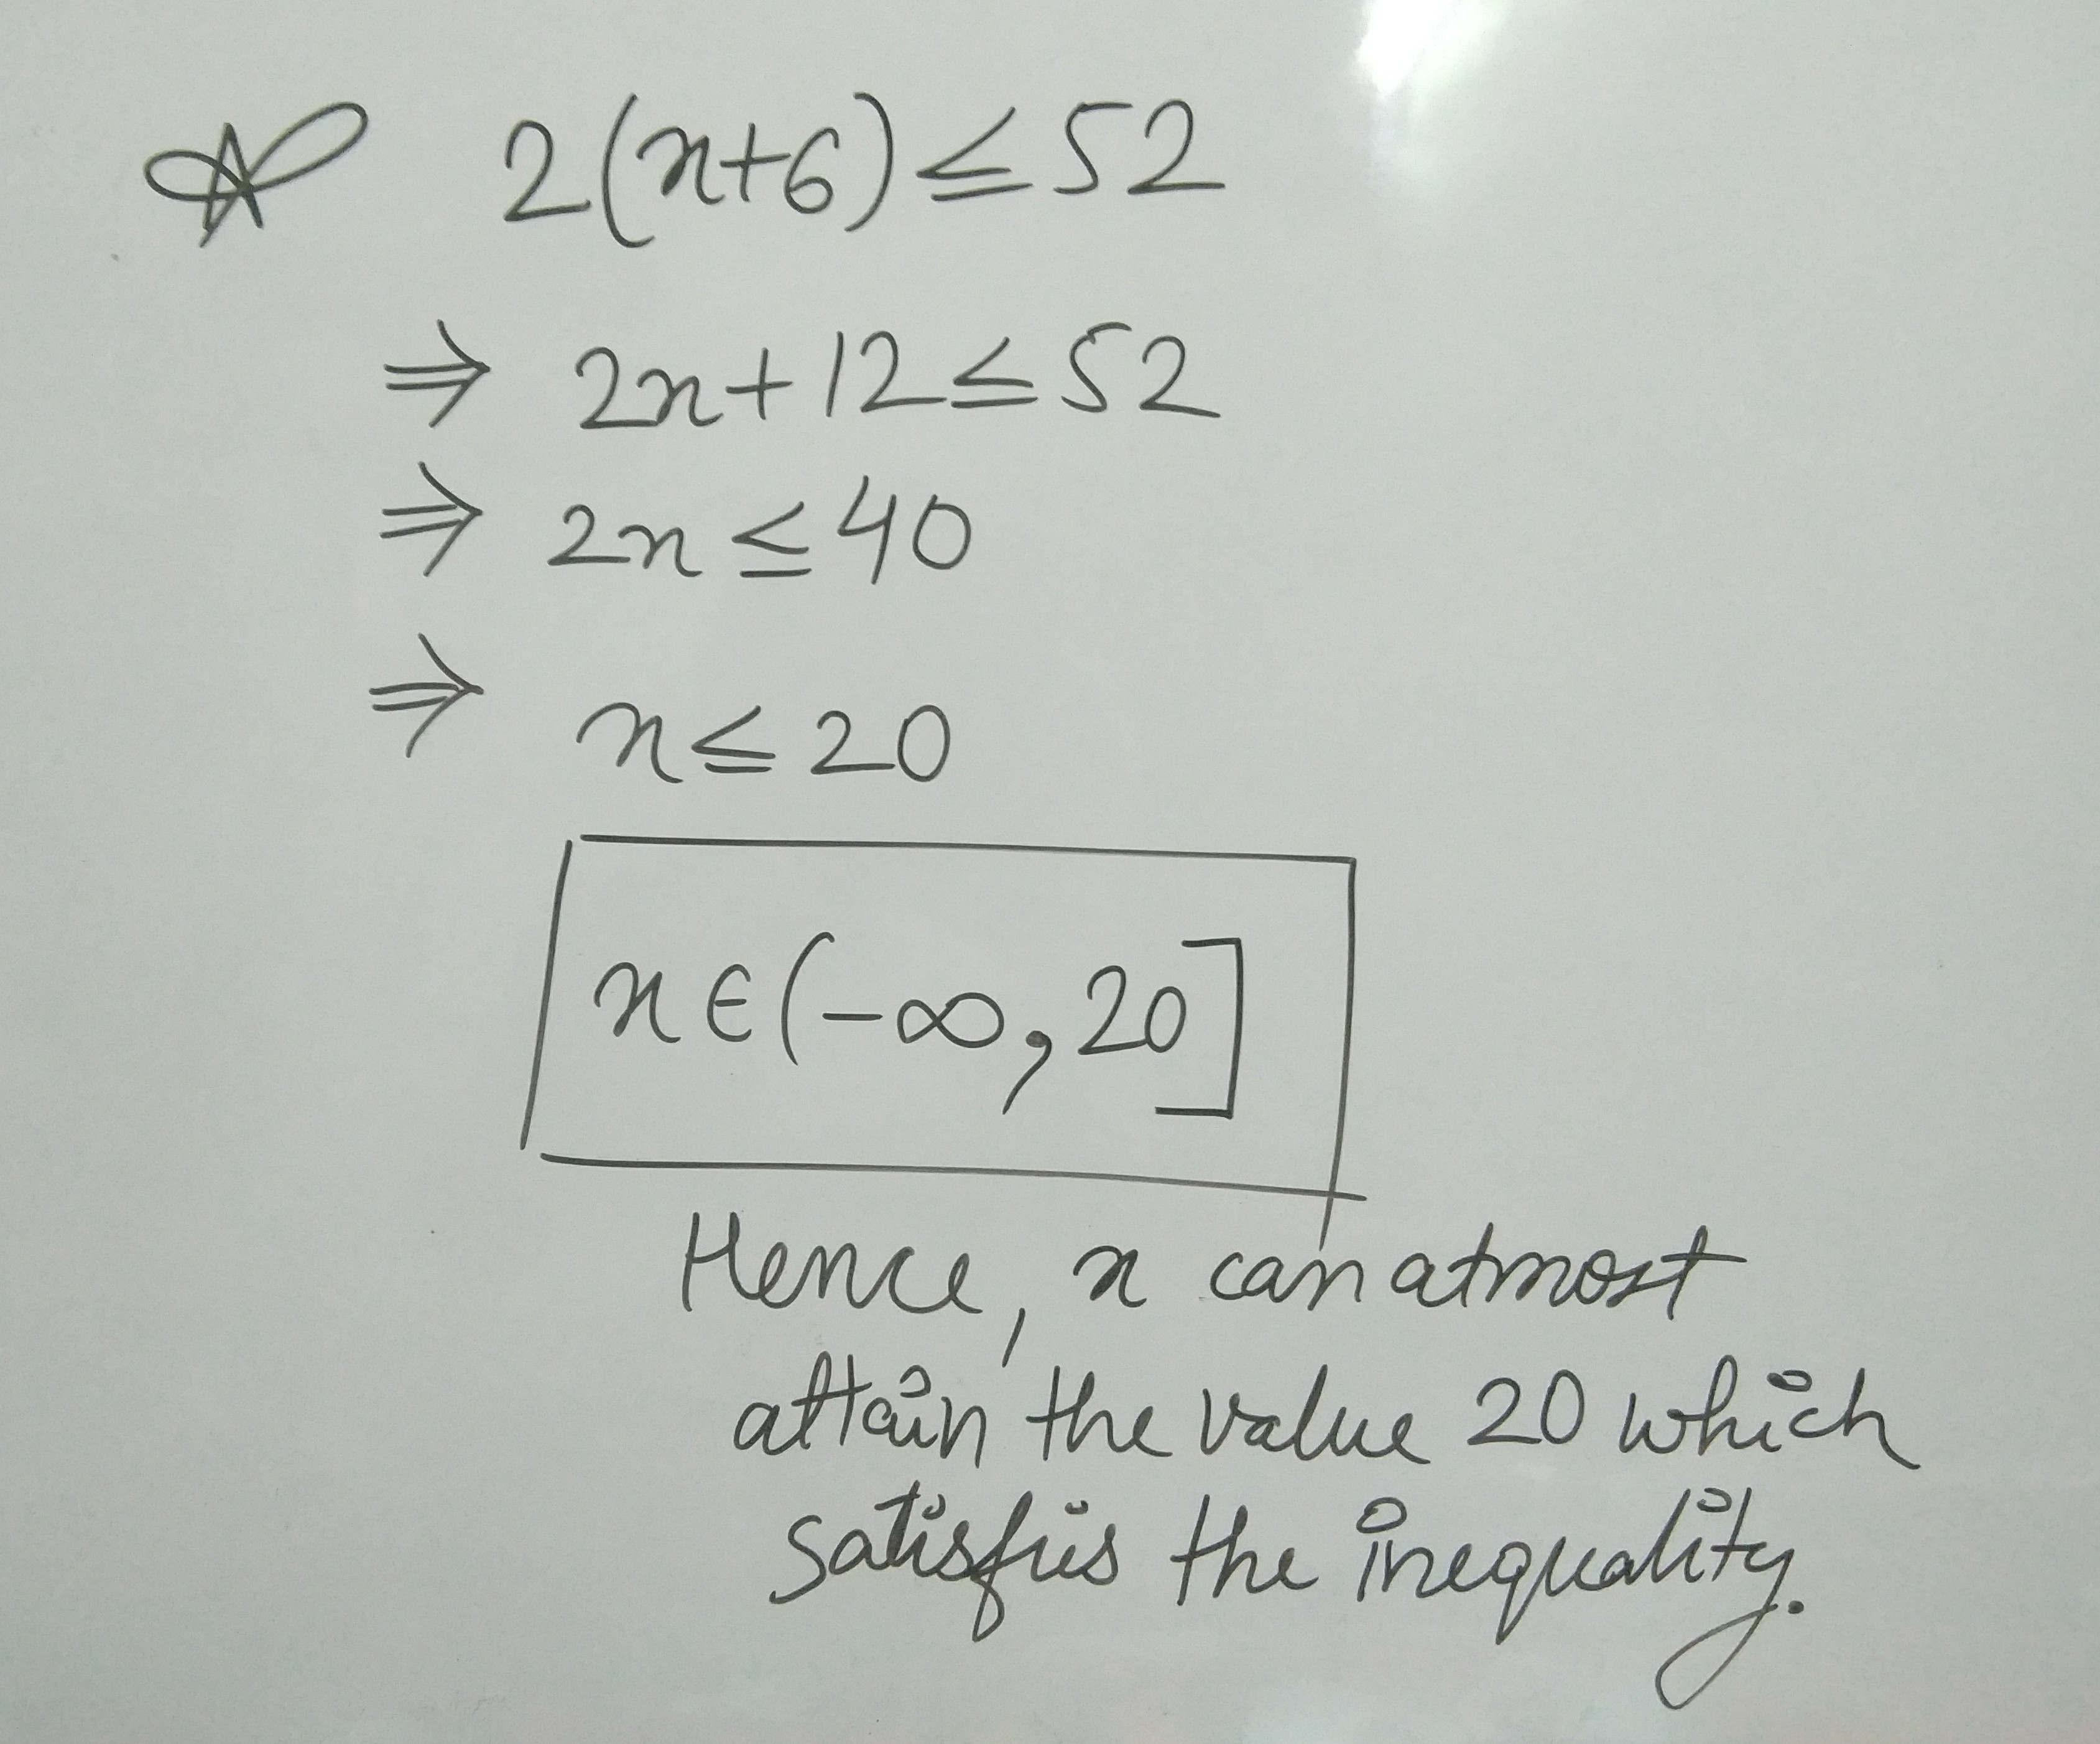 2(x+6)≤52
⇒ 2x+12≤52
⇒ 2x≤40
⇒ x≤20
x∈(-∞,20]
Hence, x can atmost
attain the value 20 which
satisfies the inequality.